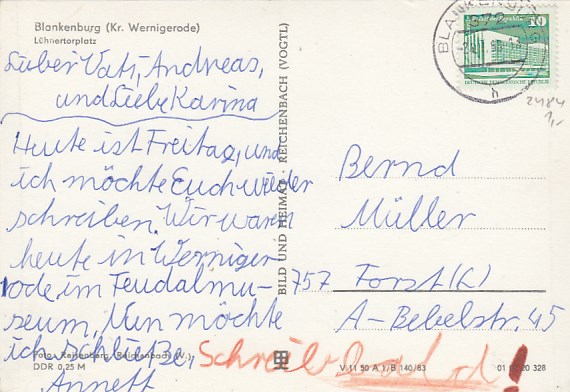 Blankenburg (Kr. Wernigerode)
Lühnertorplatz
Lieber Vati, Andreas,
und Liebe Karina
Heute ist Freitag, und
ich möchte Euch wieder
schreiben. Wir waren
heute in Werniger-
ode, im Feudalmu-
seum, Nun möchte
ich schließe,
Annett
Schreib bald
Foto: Reisenberg, Reichenbach (V.)
DDR 0,25 M
BILD UND HEIMAT REICHENBACH (VOGTL)
BLANKENBURG
h
10
Palast der Republik
DEUTSCHE DEMOKRATISCHE REPUBLIK
2484
1,-
Bernd
Müller
757 Forst (L)
A-Bebelstr. 45
V 11 50 A 1/B 140/83
328